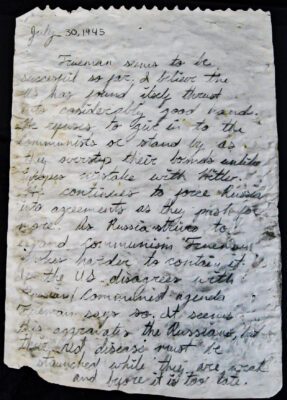 July 30, 1945
Trueman seems to be
succesful so far. I believe the
US has found itsely thrust
into considerably good hands.
He refuses to give in to the
communists or stand by as
they overstep their bounds unlike
Europes mistake with Hitler.
He continues to force Russia
into agreements as they push for
more. As Russia strives to
expand communism Trueman
strikes harder to contain it.
the US disagrees with
Russian/Communist agenda
Trueman says so. It seems
this aggravates the Russians, but
their red disease must be
staunched while they are weak
and before it is too late.